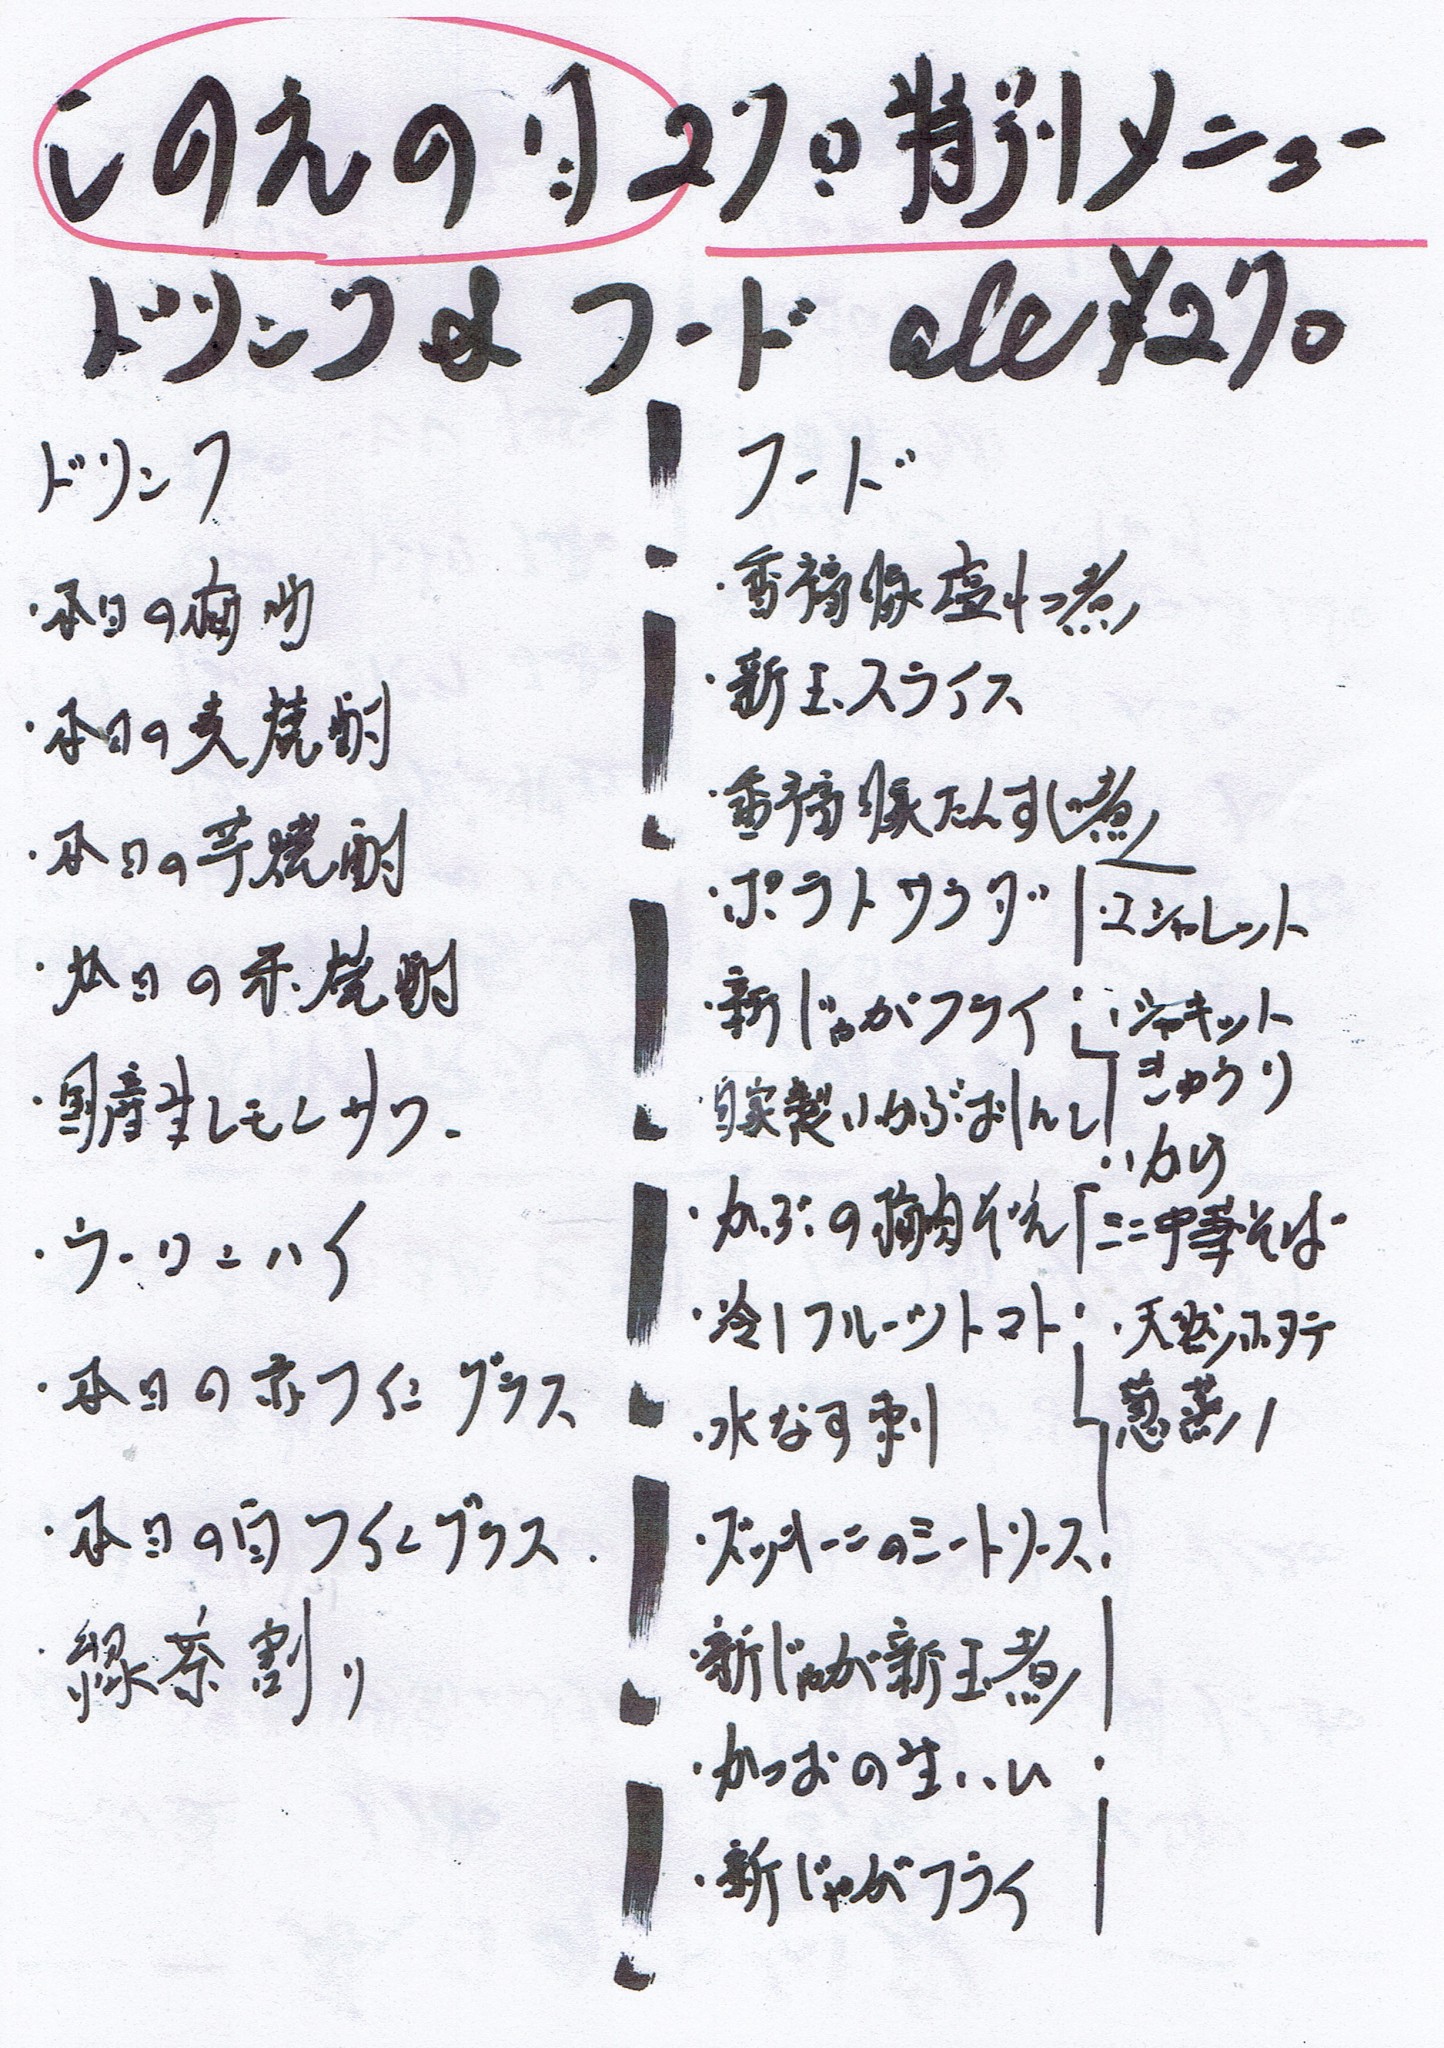 しのえの日270特別メニュー
ドリンク&フード all¥270
ドリンク
・本日の梅酒
・本日の麦焼酎
・本日の芋焼酎
・本日の米焼酎
・国産生レモンサワー
・ウーロンハイ
・本日の赤ワイングラス
・本日の白ワイングラス
・緑茶割り
フード
・香福豚塩もつ煮
・新玉スライス
・香福豚たんすじ煮
・ポテトサラダ
・新じゃがフライ
自家製いかぶおしんこ
・かぶの鶏肉ぞえ
・冷しフルーツトマト
・水なす刺
・ズッキーニのミートソース
・新じゃが新玉煮
・かつおの生
・新じゃがフライ
・エシャレット
・ジャキット
きゅうり
・いかけ
ミニ中華そば
・天然ホタテ
葱蒸し